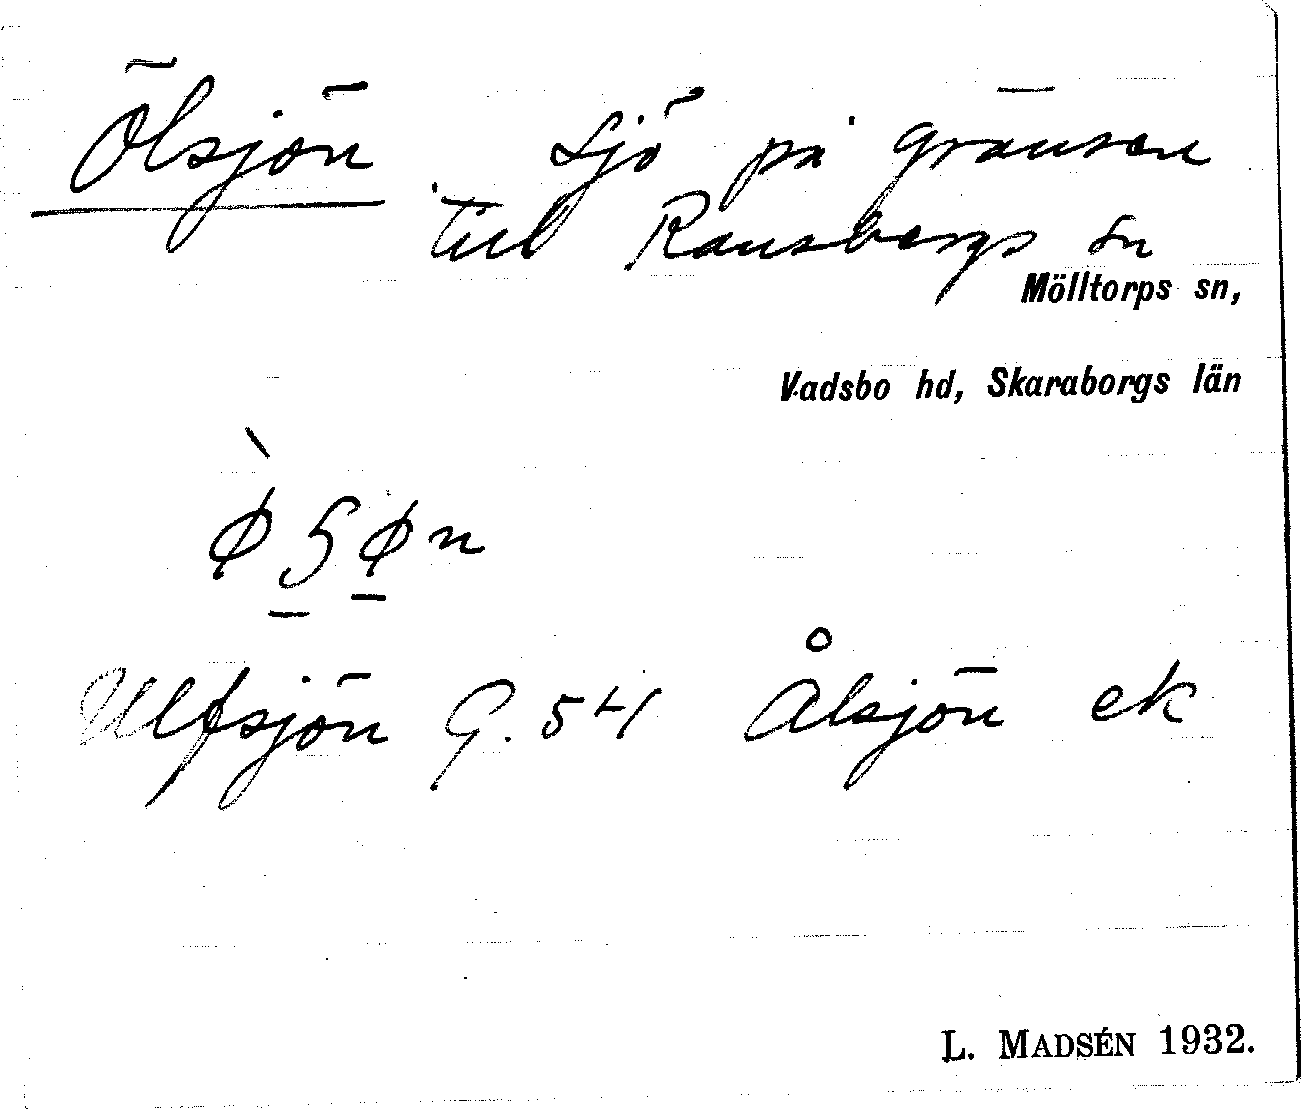 Ölsjön Sjö på gränsen
till Ransbergs sn
Mölltorps sn,
Vadsbo hd, Skaraborgs län
Ulfsjön G. 54 Ålsjön ek
L. MADSÉN 1932.